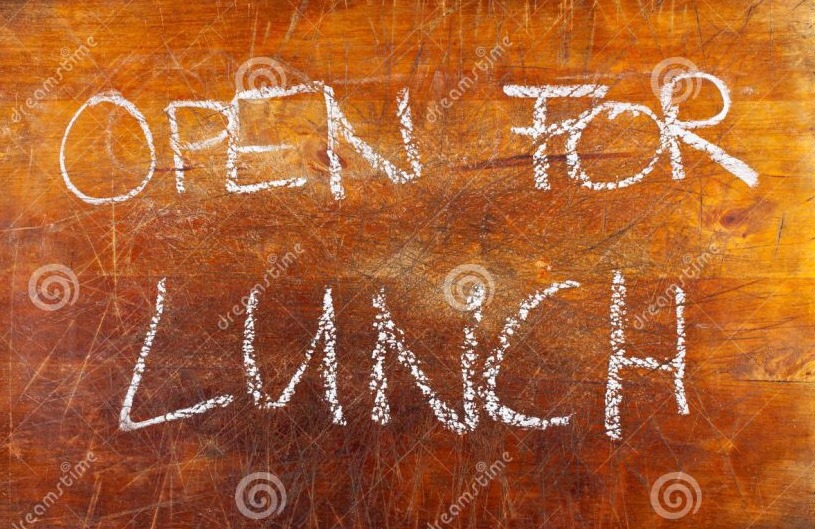 OPEN FOR
LUNCH
dreamstime
dreamstime
dreamstime
dreamstime
dreamstime
dreamstime
dreamstime